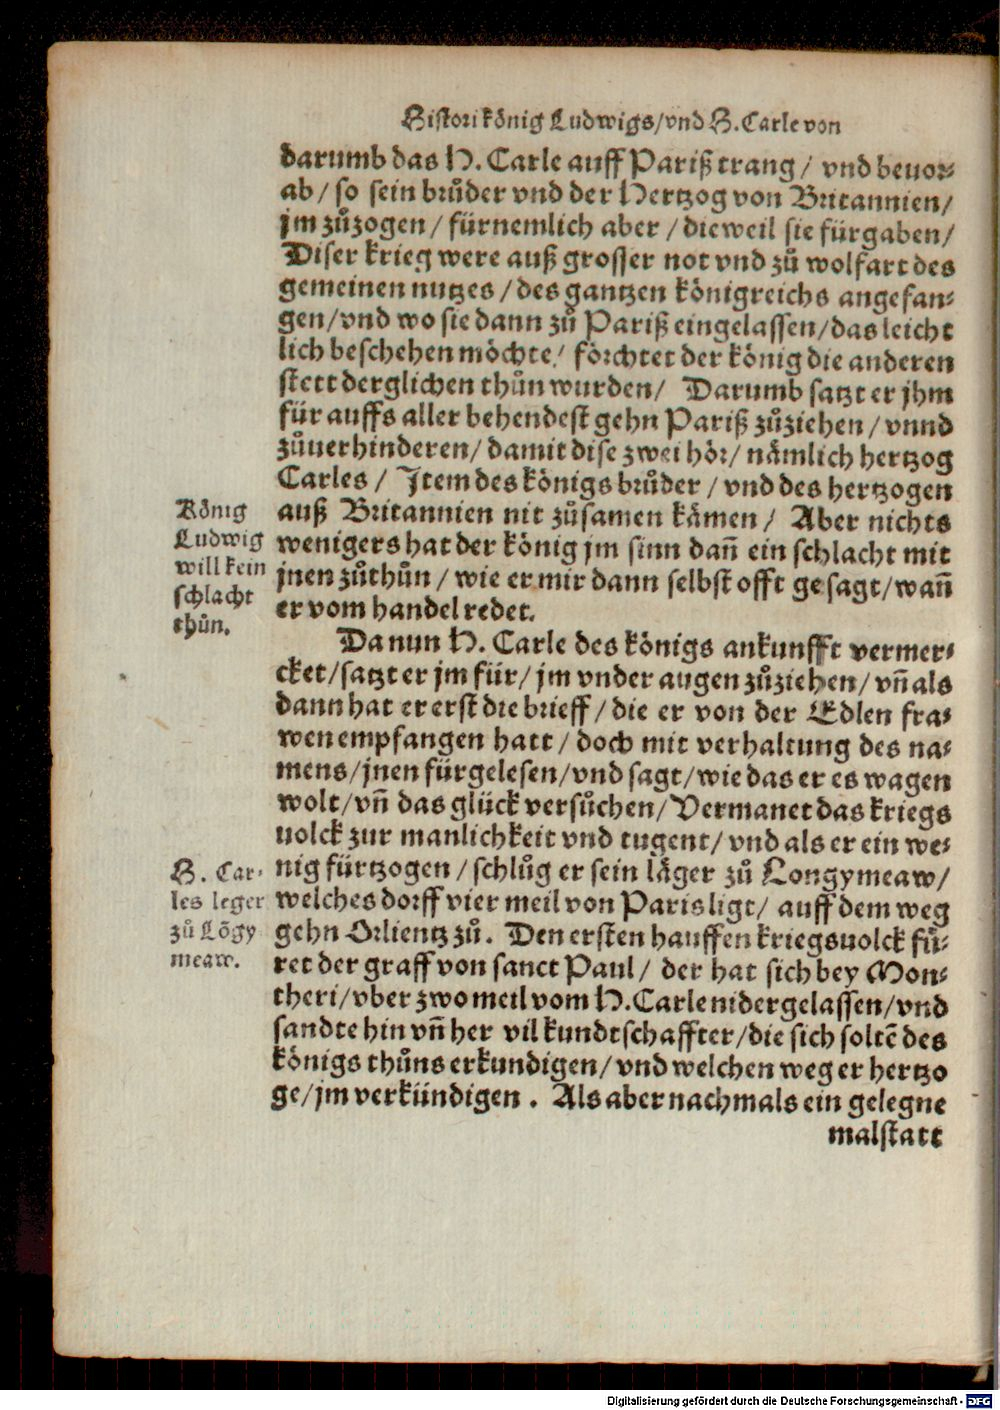 Histori König Ludwigs/vnd H. Carle von
darumb das H. Carle auff Pariß trang/ vnd beuor⸗
ab/ so sein brůder vnd der Hertzog von Britannien/
jm zůzogen/ fürnemlich aber/ dieweil sie fürgaben/
Diser krieg were auß grosser not vnd zů wolfart des
gemeinen nutzes/ des gantzen königreichs angefan⸗
gen/vnd wo sie dann zů Pariß eingelassen/das leicht
lich beschehen möchte/ förchtet der könig die anderen
stett derglichen thůn wurden/ Darumb satzt er jhm
für auffs aller behendest gehn Pariß zůziehen/ vnnd
zůuerhinderen/ damit dise zwei hör/ nämlich hertzog
Carles/ Item des königs brůder/ vnd des hertzogen
auß Britannien nit zůsamen kämen/ Aber nichts
König
Ludwig
will kein
schlacht
thůn.
wenigers hat der könig jm sinn dañ ein schlacht mit
jnen zůthůn/ wie er mir dann selbst offt gesagt/wañ
er vom handel redet.
Da nun H. Carle des königs ankunfft vermer⸗
cket/satzt er jm für/ jm vnder augen zůziehen/ vñ als
dann hat er erst die brieff/ die er von der Edlen fra⸗
wen empfangen hatt/ doch mit verhaltung des na⸗
mens/jnen fürgelesen/vnd sagt/wie das er es wagen
wolt/vñ das glück versůchen/ Vermanet das kriegs
uolck zur manlichkeit vnd tugent/ vnd als er ein we⸗
nig fürtzogen/ schlůg er sein läger zů Longymeaw/
H. Car⸗
les leger
zů Lõgy
meaw.
welches dorff vier meil von Paris ligt/ auff dem weg
gehn Orlientz zů. Den ersten hauffen kriegsuolck fů⸗
ret der graff von sanct Paul/ der hat sich bey Mon⸗
theri/vber zwo meil vom H. Carle nidergelassen/vnd
sandte hin vñ her vil kundtschaffter/die sich soltẽ des
königs thůns erkundigen/ vnd welchen weg er hertzo
ge/jm verkündigen. Als aber nachmals ein gelegne
malstatt
Digitalisierung gefördert durch die Deutsche Forschungsgemeinschaft - DFG